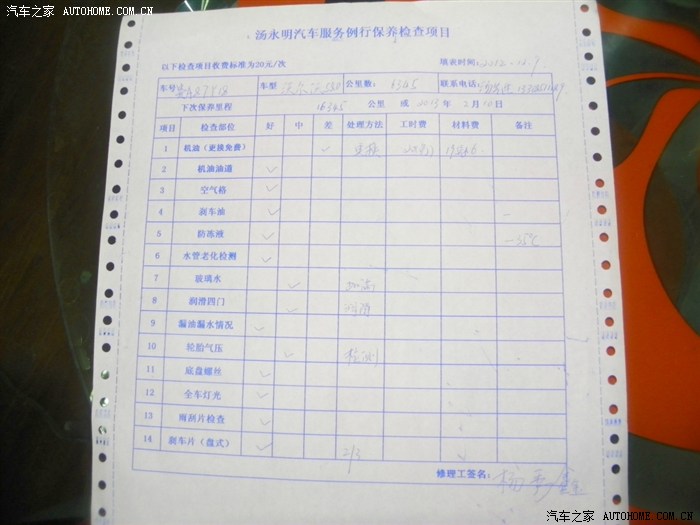 汽车之家 AUTOHOME.COM.CN
汽车之家 AUTOHOME.COM.CN
汤永明汽车服务例行保养检查项目
以下检查项目收费标准为20元/次 填表时间:
车号 车型 公里数: 6345 联系电话:
下次保养里程 16345 公里 或 2013 年 2月 10 日
项目 检查部位 好 中 差 处理方法 工时费 材料费 备注
1 机油(更换免费) ✓ 更换
2 机油油道 ✓
3 空气格 ✓
4 刹车油 ✓
5 防冻液 ✓ -35℃
6 水管老化检测 ✓
7 玻璃水 ✓ 加满
8 润滑四门 ✓ 润滑
9 漏油漏水情况 ✓
10 轮胎气压 ✓ 检测
11 底盘螺丝 ✓
12 全车灯光 ✓
13 雨刮片检查 ✓
14 刹车片(盘式) ✓ 2/3
修理工签名:
汽车之家 AUTOHOME.COM.CN
汽车之家 AUTOHOME.COM.CN